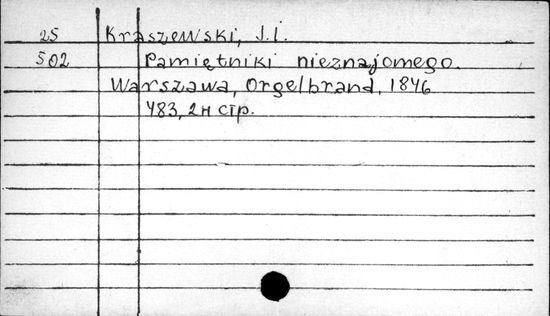 25 Kraszewski, J.I.
502 Pamiętniki nieznajomego.
Warszawa, Orgelbrand, 1846
483, 2н стр.